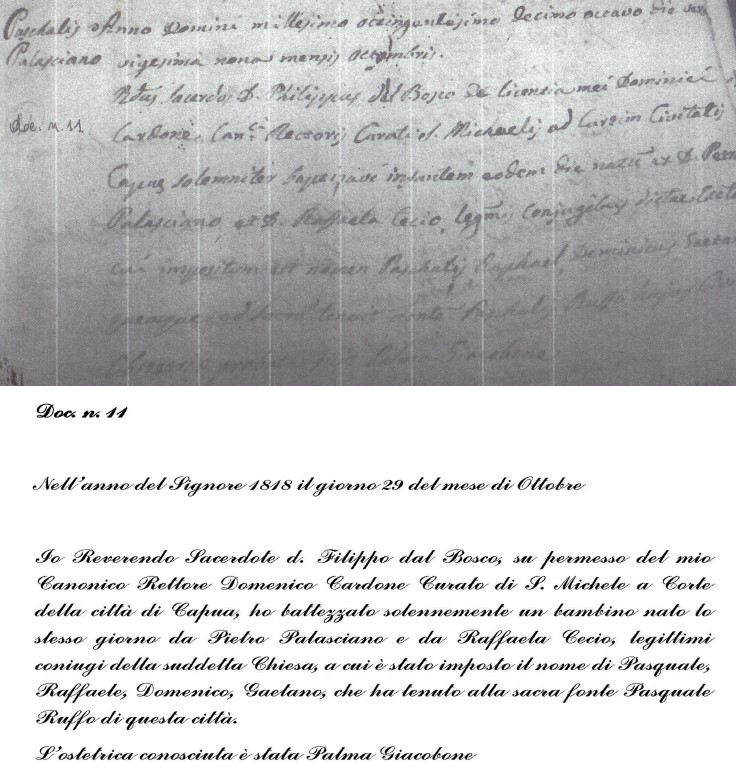 Paschalis Anno Domini millesimo octingentesimo Decimo octavo die
Palasciano vigesima nona mensis octombris.
Sacerdos D. Philippus Bosco de licentia mei Dominici
Doc. n. 11
Cardone, Rectoris Curati S. Michaelis ad Curtim Civitatis
Capuę solemniter baptizavi infantem eodem die natū ex D.
Palasciano, et D. Raffaela Cecio, conjugibus dictae
cui impositum est nomen Paschalis Raphael, Dominicus
Ruffo
Palma Giacobone
Doc. n. 11
Nell'anno del Signore 1818 il giorno 29 del mese di Ottobre
Io Reverendo Sacerdote d. Filippo dal Bosco, su permesso del mio
Canonico Rettore Domenico Cardone Curato di S. Michele a Corte
della città di Capua, ho battezzato solennemente un bambino nato lo
stesso giorno da Pietro Palasciano e da Raffaela Cecio, legittimi
coniugi della suddetta Chiesa, a cui è stato imposto il nome di Pasquale,
Raffaele, Domenico, Gaetano, che ha tenuto alla sacra fonte Pasquale
Ruffo di questa città.
L'ostetrica conosciuta è stata Palma Giacobone